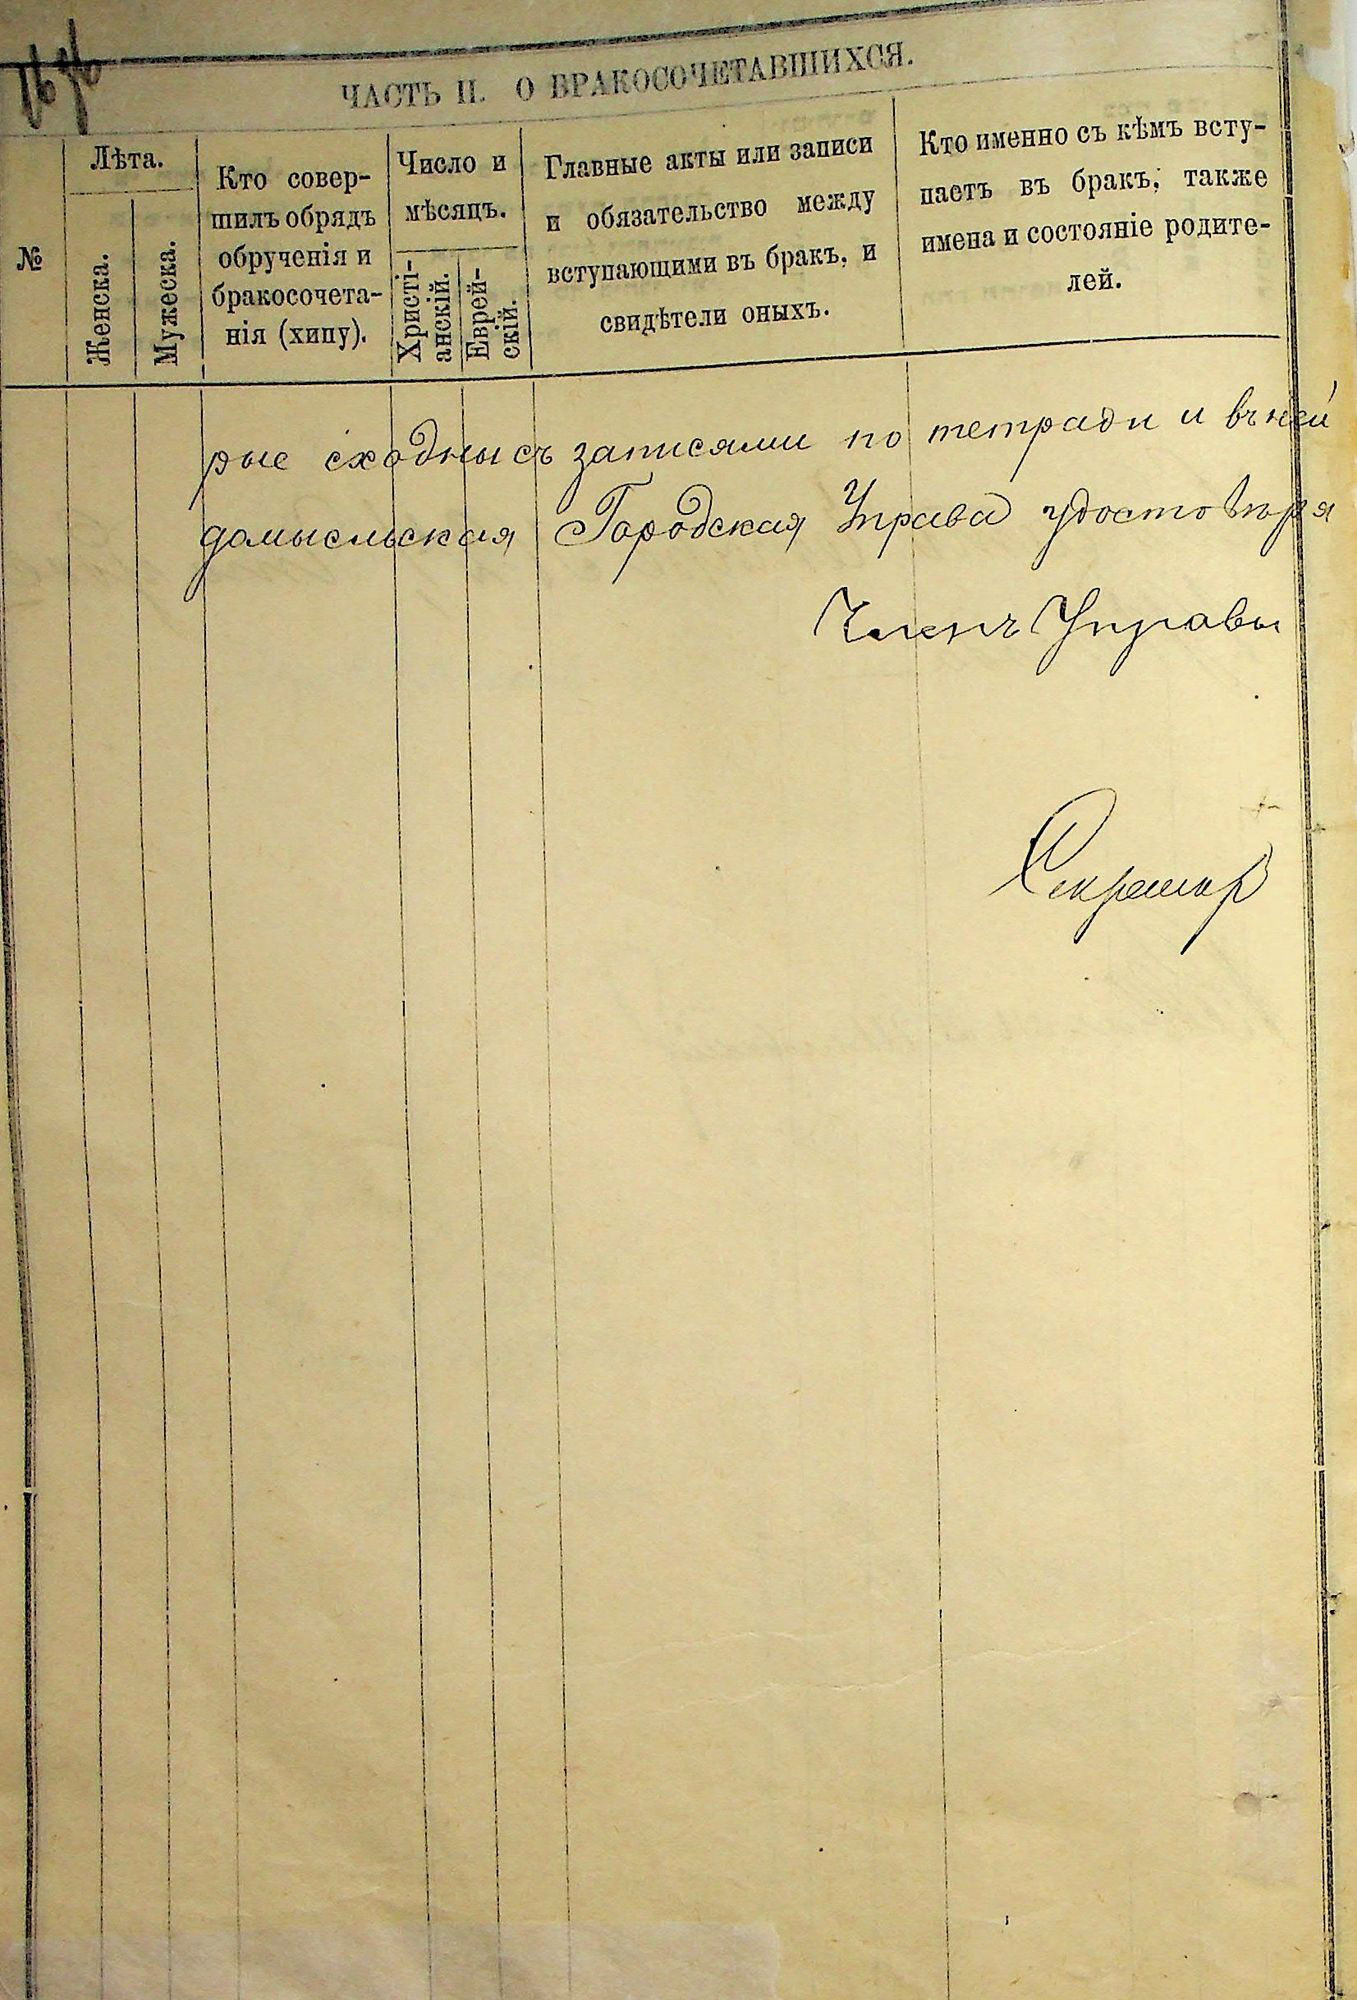 ЧАСТЬ II. О БРАКОСОЧЕТАВШИХСЯ.
№
Лѣта.
Женска.
Мужеска.
Кто совер-
шилъ обрядъ
обрученія и
бракосочета-
нія (хипу).
Число и
мѣсяцъ.
Христі-
анскій.
Еврей-
скій.
Главные акты или записи
и обязательство между
вступающими въ бракъ, и
свидѣтели оныхъ.
Кто именно съ кѣмъ всту-
паетъ въ бракъ, также
имена и состояніе родите-
лей.
рые сходны съ записями по тетради и въ ней
домысльская Городская Управа удостовѣря
Членъ Управы
Секретарь